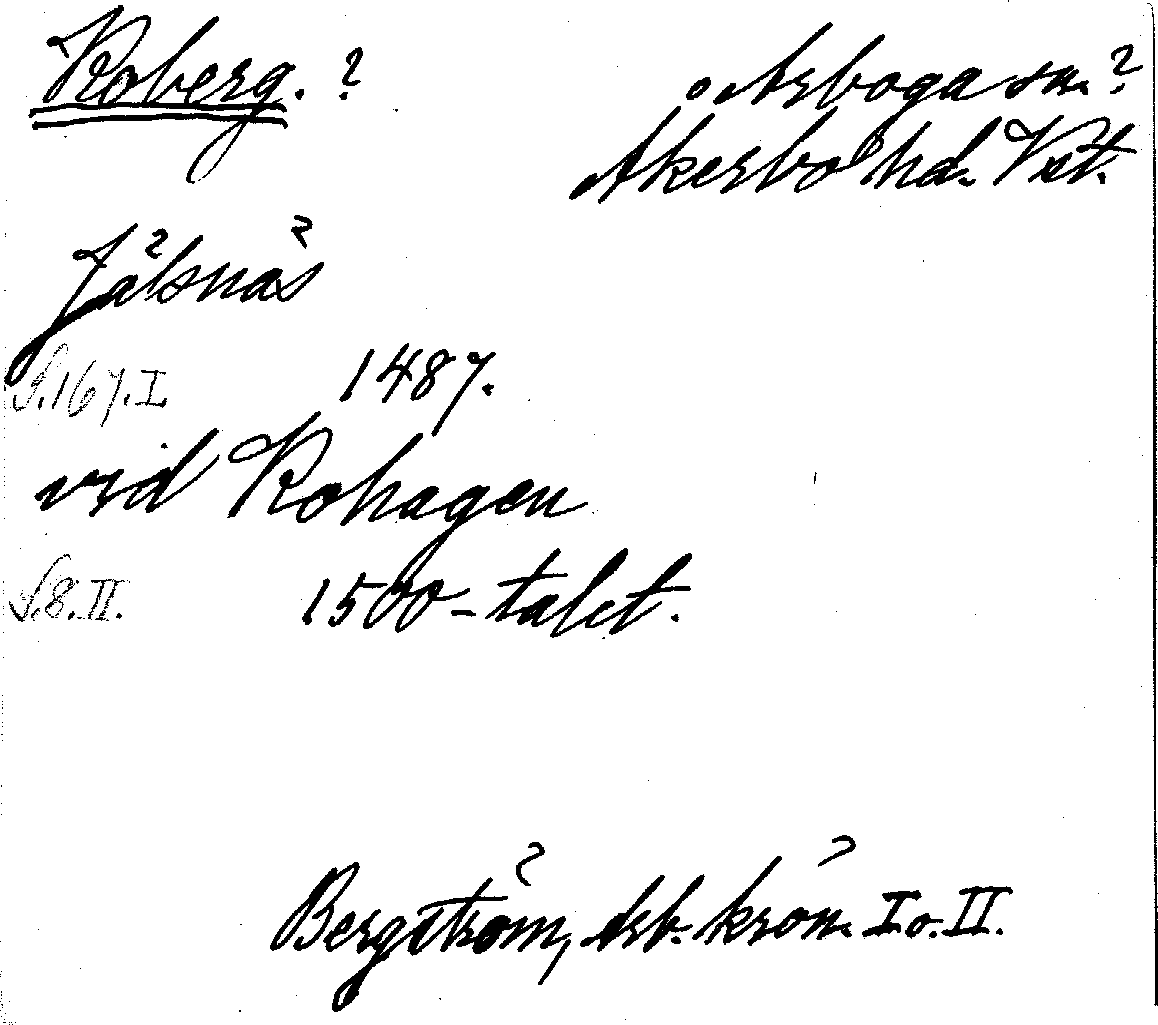 Koberg. ?
Arboga sn. ?
Åkerbo hd. Vst.
Jälsnäs
S. 167. I. 1487.
vid Kohagen
S. 8. II. 1500-talet.
Bergström, Arb. krön. I o. II.